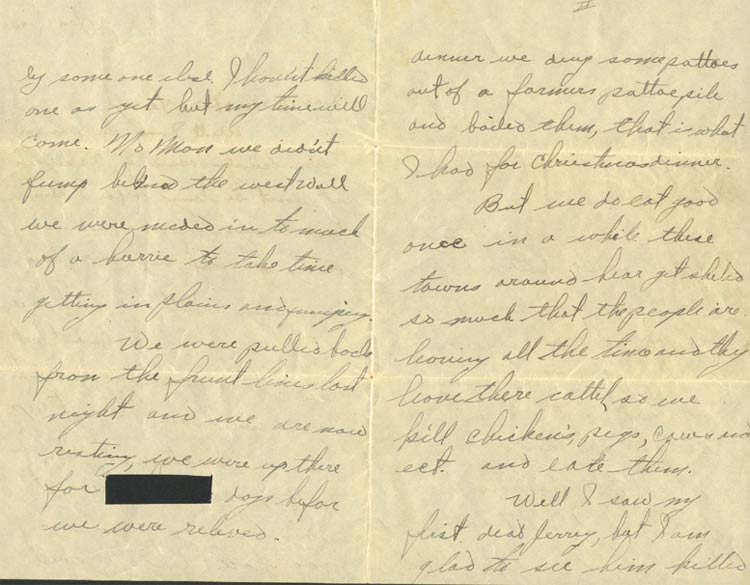 by some one else. I havn't killed
one as yet but my time will
come. No Mon we didn't
jump behind the west Wall
we were needed in to much
of a hurrie to take time
getting in plains and jumping.
We were pulled back
from the frunt lines last
night and we are now
resting, we were up there
for days befor
we were relieved.
II
dinner we dug some pattoes
out of a farmers pattoe pile
and boiled them, that is what
I had for Christmas dinner.
But we do eat good
once in a while these
towns around hear get sheled
so much that the people are
leaving all the time and they
leave there cattel, so we
kill chicken's, pigs, cows and
ect. and eate them.
Well I saw my
first dead Jerrey, but I am
glad to see him killed